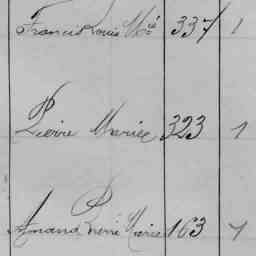 Francis Louis Mie 337 1
Pierre Marie 323 1
Amand René Marie 163 1